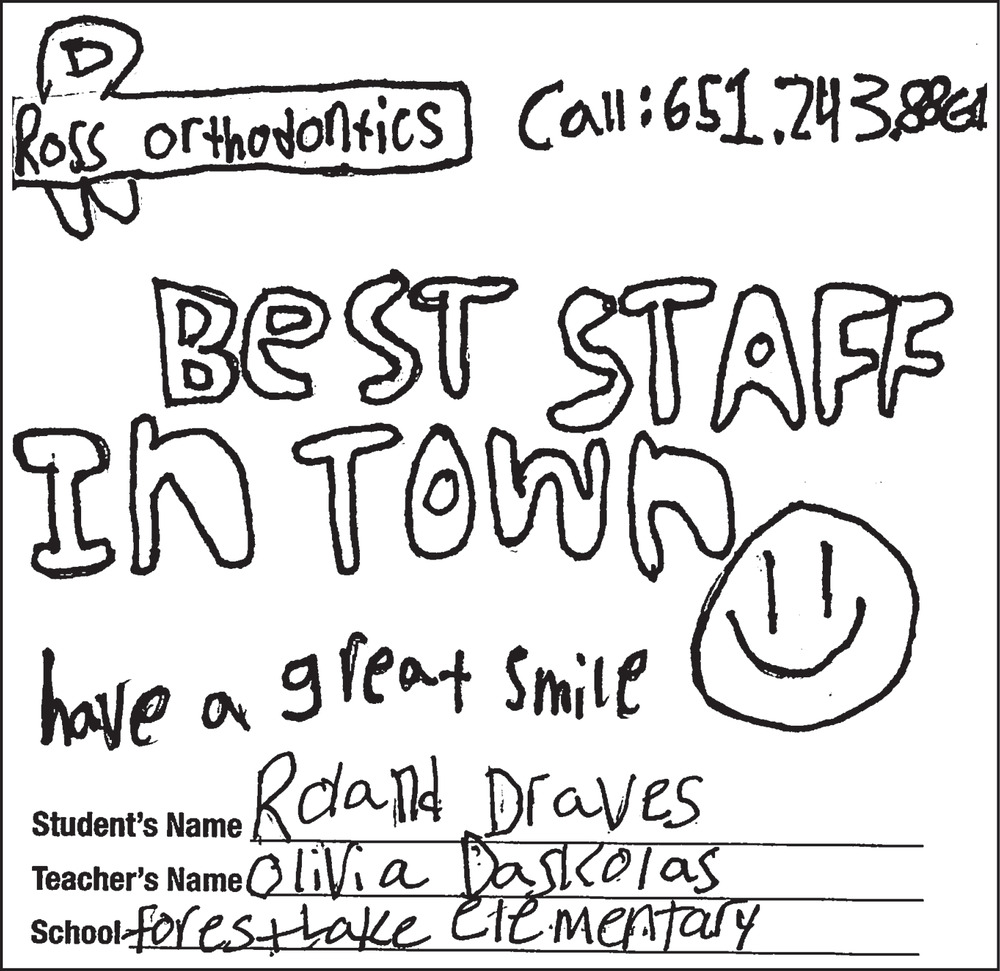 D
Ross orthodontics
Call: 651.243.8861
BeST STAFF
In TOWn
have a great smile
Student's Name Roland Draves
Teacher's Name Olivia Daskolas
School forest Lake elementary